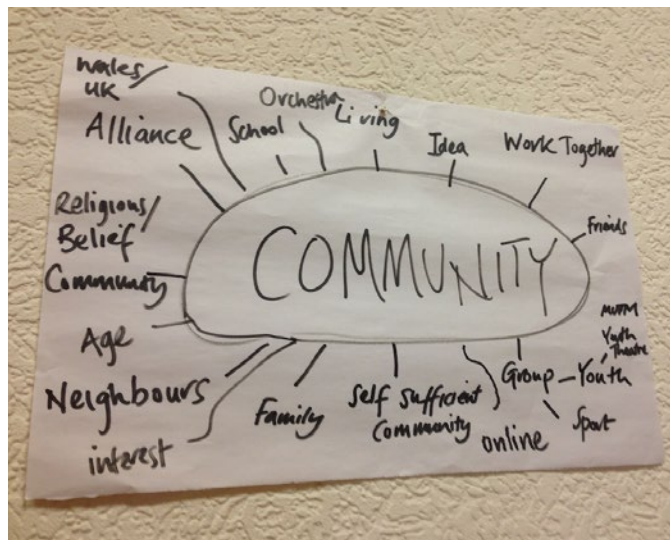 Wales/
UK
Alliance
School
Orchestra
Living
Idea
Work Together
Friends
Religious/
Belief
Community
COMMUNITY
Age
Neighbours
interest
Family
Self Sufficient
Community
online
Group - Youth
Youth
Theatre
Sport